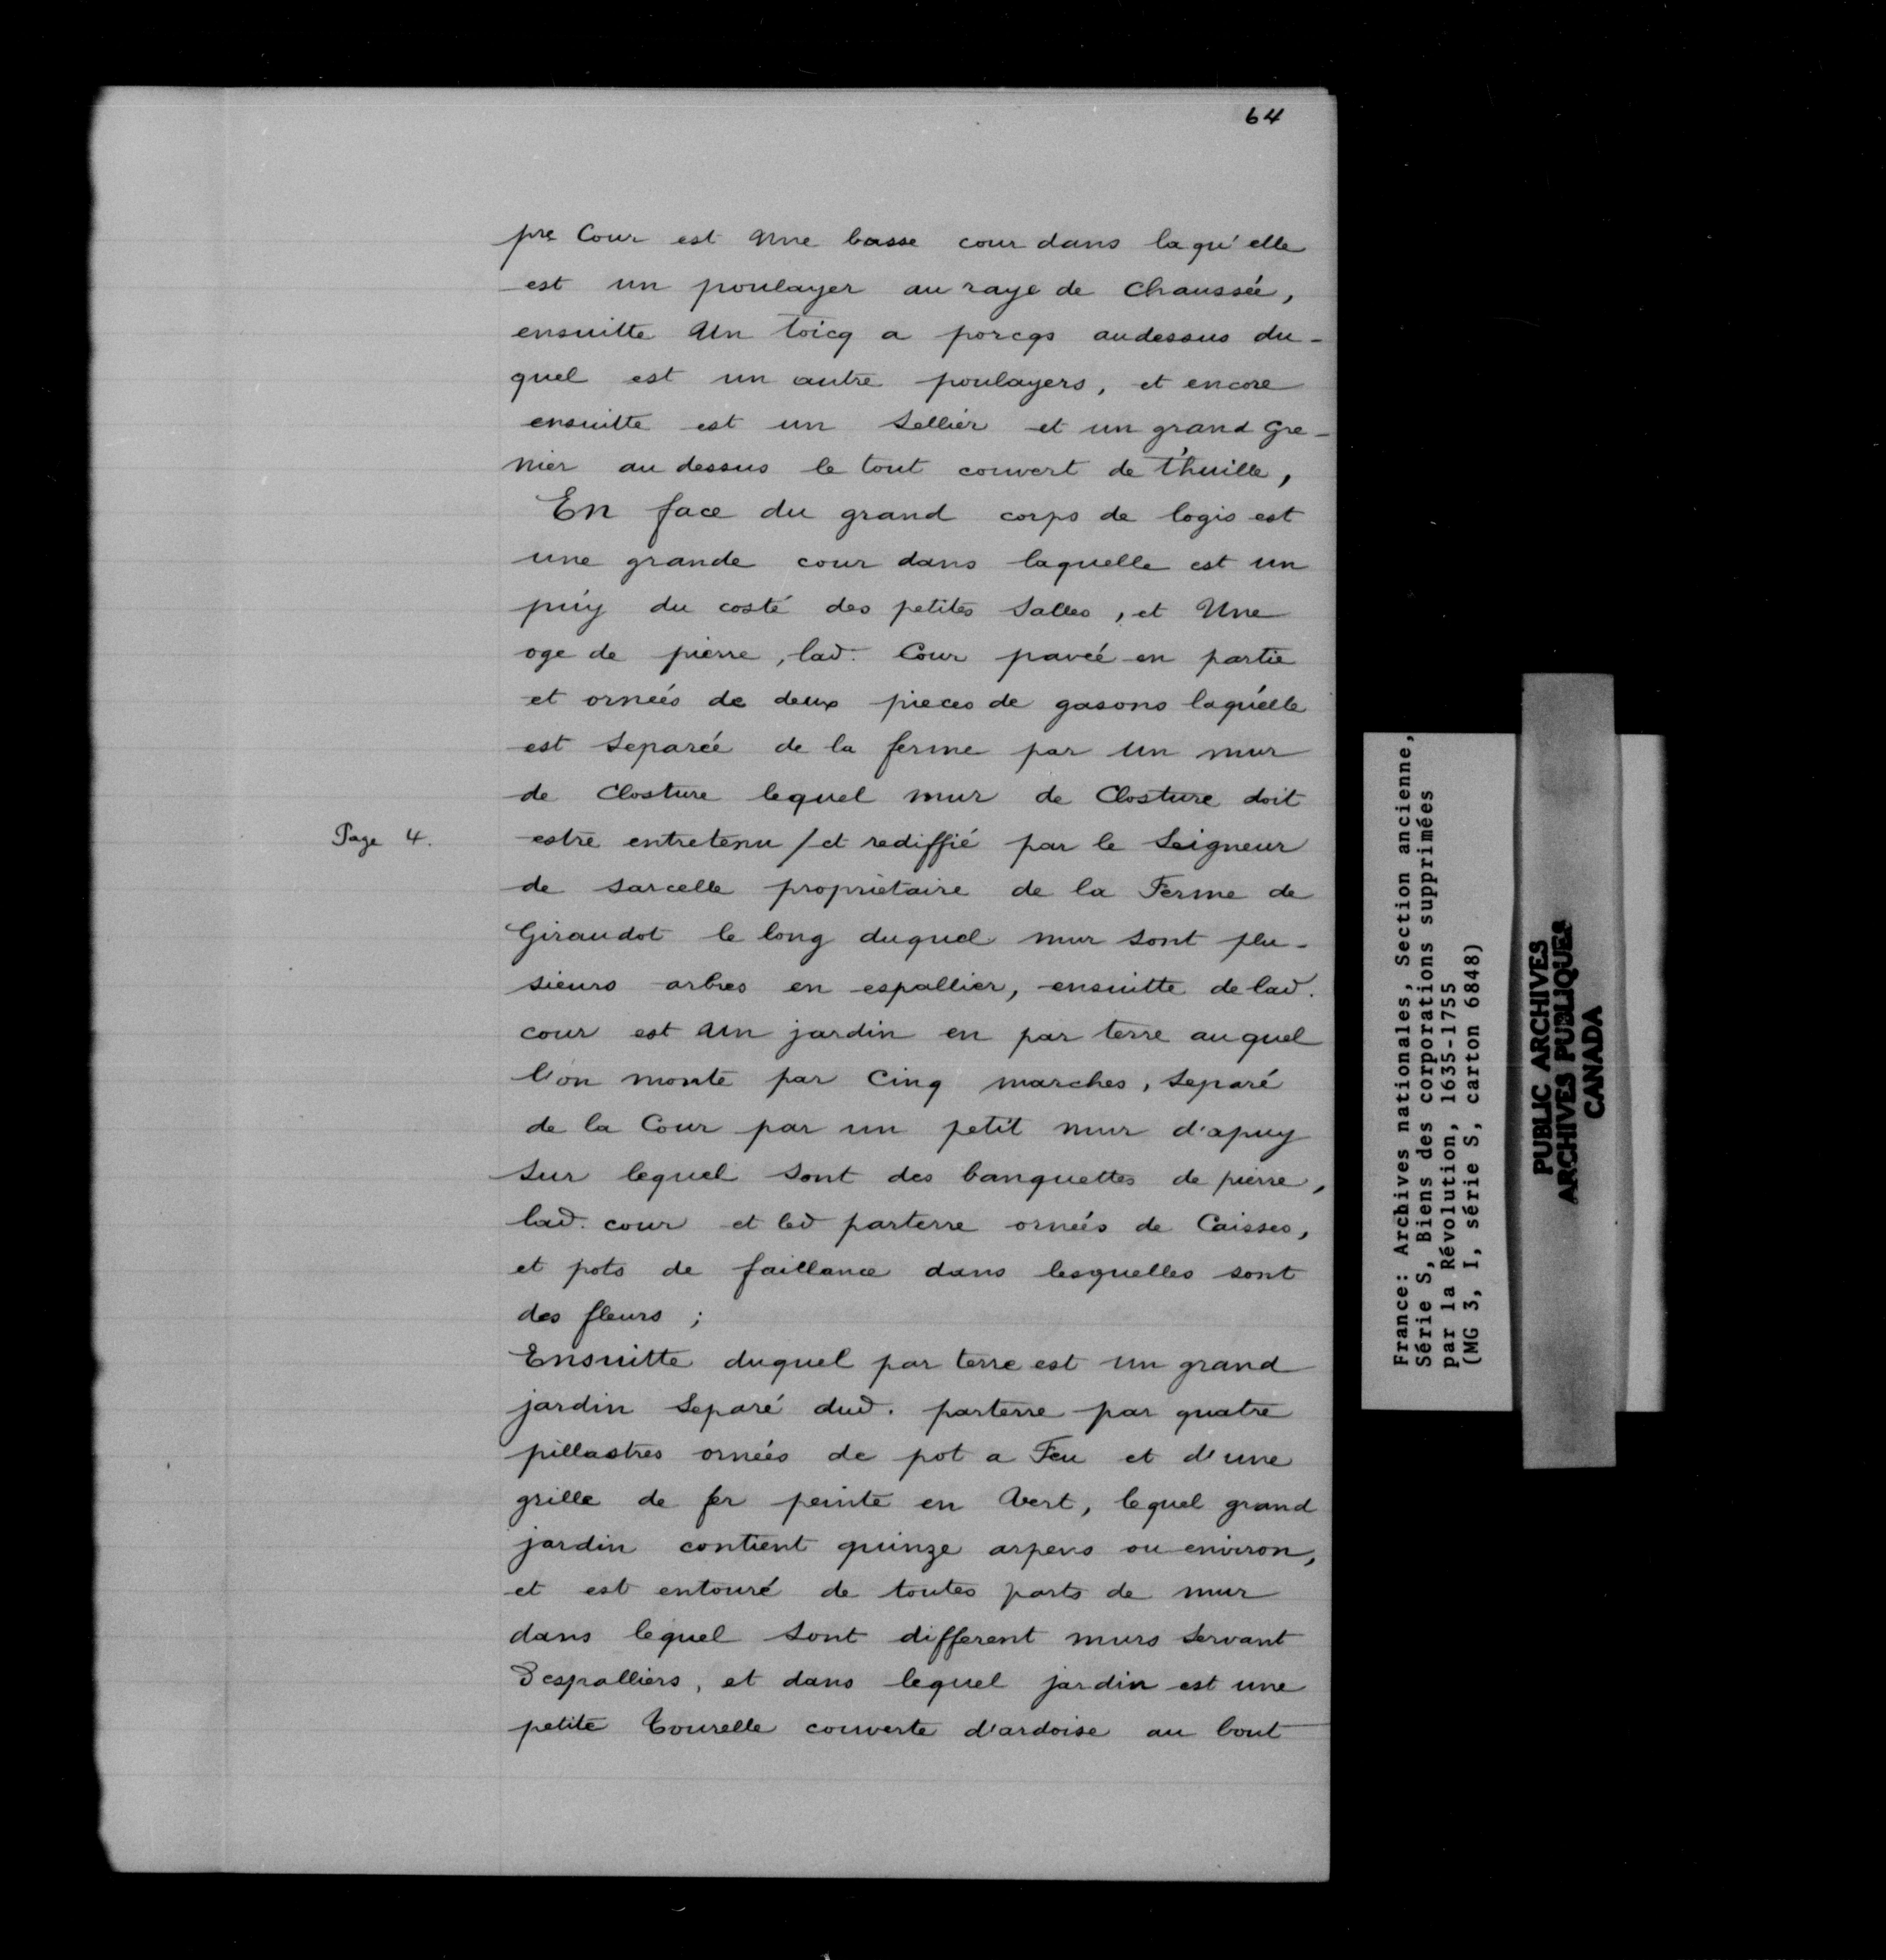 64
pre Cour est Une basse cour dans laqu'elle
est un poulayer au raye de Chaussée,
ensuitte Un toicq a porcqs audessus du-
quel est un autre poulayers, et encore
ensuitte est un Sellier et un grand Gre-
nier au dessus le tout couvert de t'huille,
En face du grand corps de logis est
une grande cour dans laquelle est un
puy du costé des petites Salles, et Une
oge de pierre, lad. Cour paveé en partie
et orneés de deux pieces de gasons laquelle
est Separée de la ferme par Un mur
de Closture lequel mur de Closture doit
Page 4.
estre entretenu / et rediffié par le Seigneur
de Sarcelle proprietaire de la Ferme de
Giraudot le long duquel mur sont plu-
sieurs arbres en espallier, ensuitte de lad.
cour est Un jardin en par terre auquel
l'on monte par Cinq marches, Separé
de la Cour par un petit mur d'apuy
Sur lequel Sont des banquettes de pierre,
lad. cour et led parterre orneés de Caisses,
et pots de faillance dans lesquelles sont
des fleurs ;
Ensuitte duquel par terre est un grand
jardin Separé dud. parterre par quatre
pillastres orneés de pot a Feu et d'une
grille de fer peinte en Vert, lequel grand
jardin contient quinze arpens ou environ,
et est entouré de toutes parts de mur
dans lequel Sont different murs Servant
Despalliers, et dans lequel jardin est une
petite tourelle couverte d'ardoise au bout
France: Archives nationales, Section ancienne,
Série S, Biens des corporations supprimées
par la Révolution, 1635-1755
(MG 3, I, série S, carton 6848)
PUBLIC ARCHIVES
ARCHIVES PUBLIQUES
CANADA